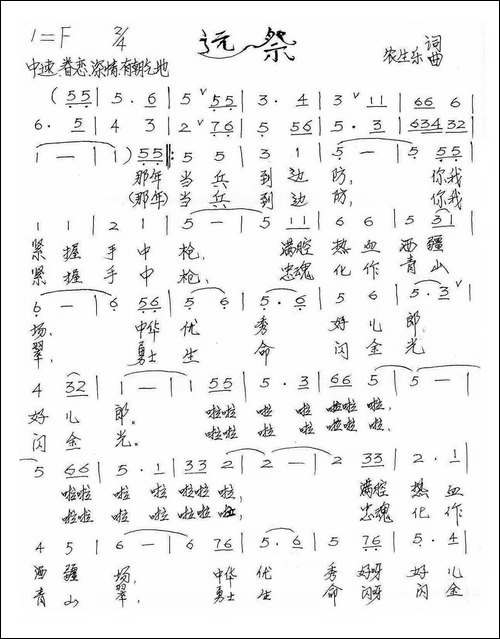 1=F 2/4 远祭 词
中速 眷恋、深情、有朝气地 农生乐 曲
( 55 | 5. 6 | 5 ∨ 55 | 3. 4 | 3 ∨ 11 | 66 6 |
6. 5 | 4 3 | 2 ∨ 76 | 5 56 | 5. 3 | 634 32 |
1 — | 1 ) 55 ‖: 5 5 | 3 1 | 5 — | 5 55 |
那年 当 兵 到 边 防, 你我
(那年) 当 兵 到 边 防, 你我
1 1 | 2 1 | 5 — | 5 11 | 6 6 | 5 31 |
紧 握 手 中 枪, 满腔 热 血 洒 疆
紧 握 手 中 枪, 忠魂 化 作 青 山
6 — | 6 56 | 5 6 | 5. 6 | 5 6 | 5. 3 ∨ |
场, 中华 优 秀 好 儿 郎,
翠, 勇士 生 命 闪 金 光
4 32 | 1 — | 1 55 | 5. 3 | 66 5 | 5 — |
好 儿 郎。 啦啦 啦 啦 啦啦 啦,
闪 金 光。 啦啦 啦 啦 啦啦 啦,
5 66 | 5. 1 | 33 2 | 2 — | 2 33 | 2. 1 |
啦啦 啦 啦 啦啦 啦, 满腔 热 血
啦啦 啦 啦 啦啦 啦, 忠魂 化 作
4 5 | 6 — | 6 76 | 5. 6 | 5 76 | 5. 4 |
洒 疆 场, 中华 优 秀 好呀 好 儿
青 山 翠, 勇士 生 命 闪呀 闪 金